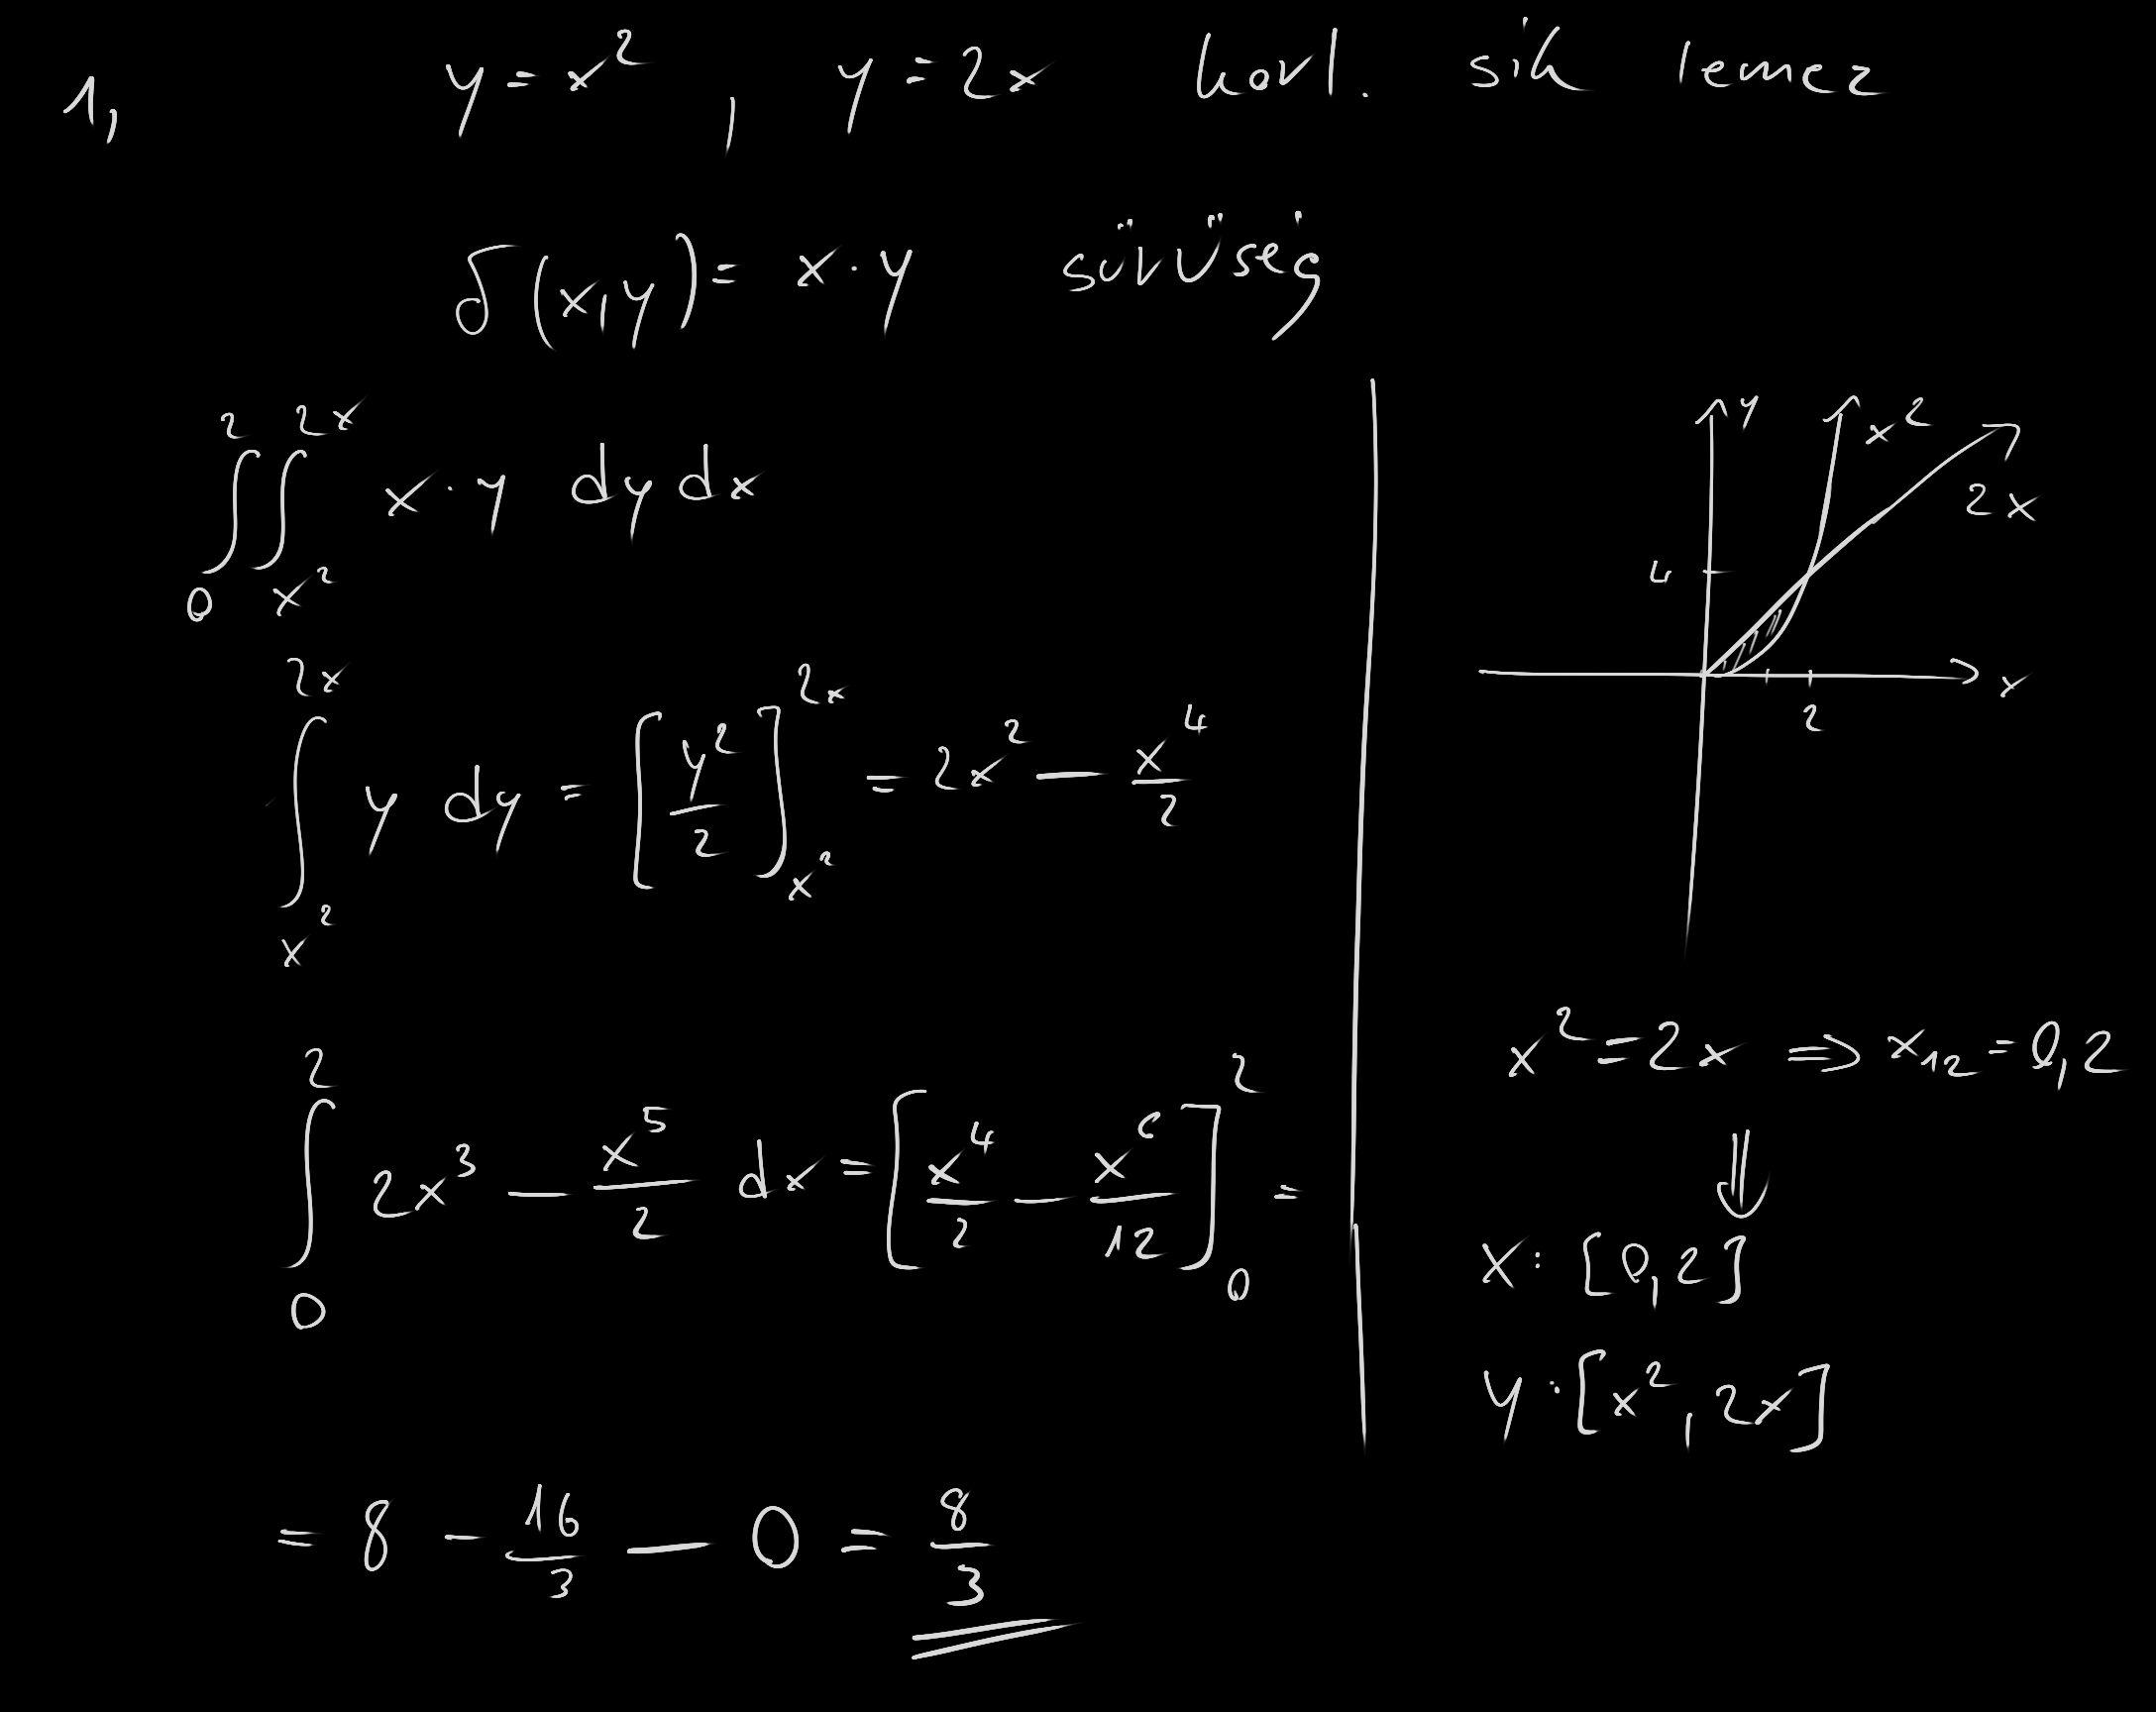 1, y = x², y = 2x korl. sík lemez
δ(x,y) = x·y sűrűség
∫₀² ∫_{x²}^{2x} x·y dy dx
∫_{x²}^{2x} y dy = [y²/2]_{x²}^{2x} = 2x² − x⁴/2
∫₀² 2x³ − x⁵/2 dx = [x⁴/2 − x⁶/12]₀² =
= 8 − 16/3 − 0 = 8/3
y
x²
2x
4
x
2
x² = 2x ⇒ x₁₂ = 0,2
⇓
x: [0,2]
y: [x², 2x]